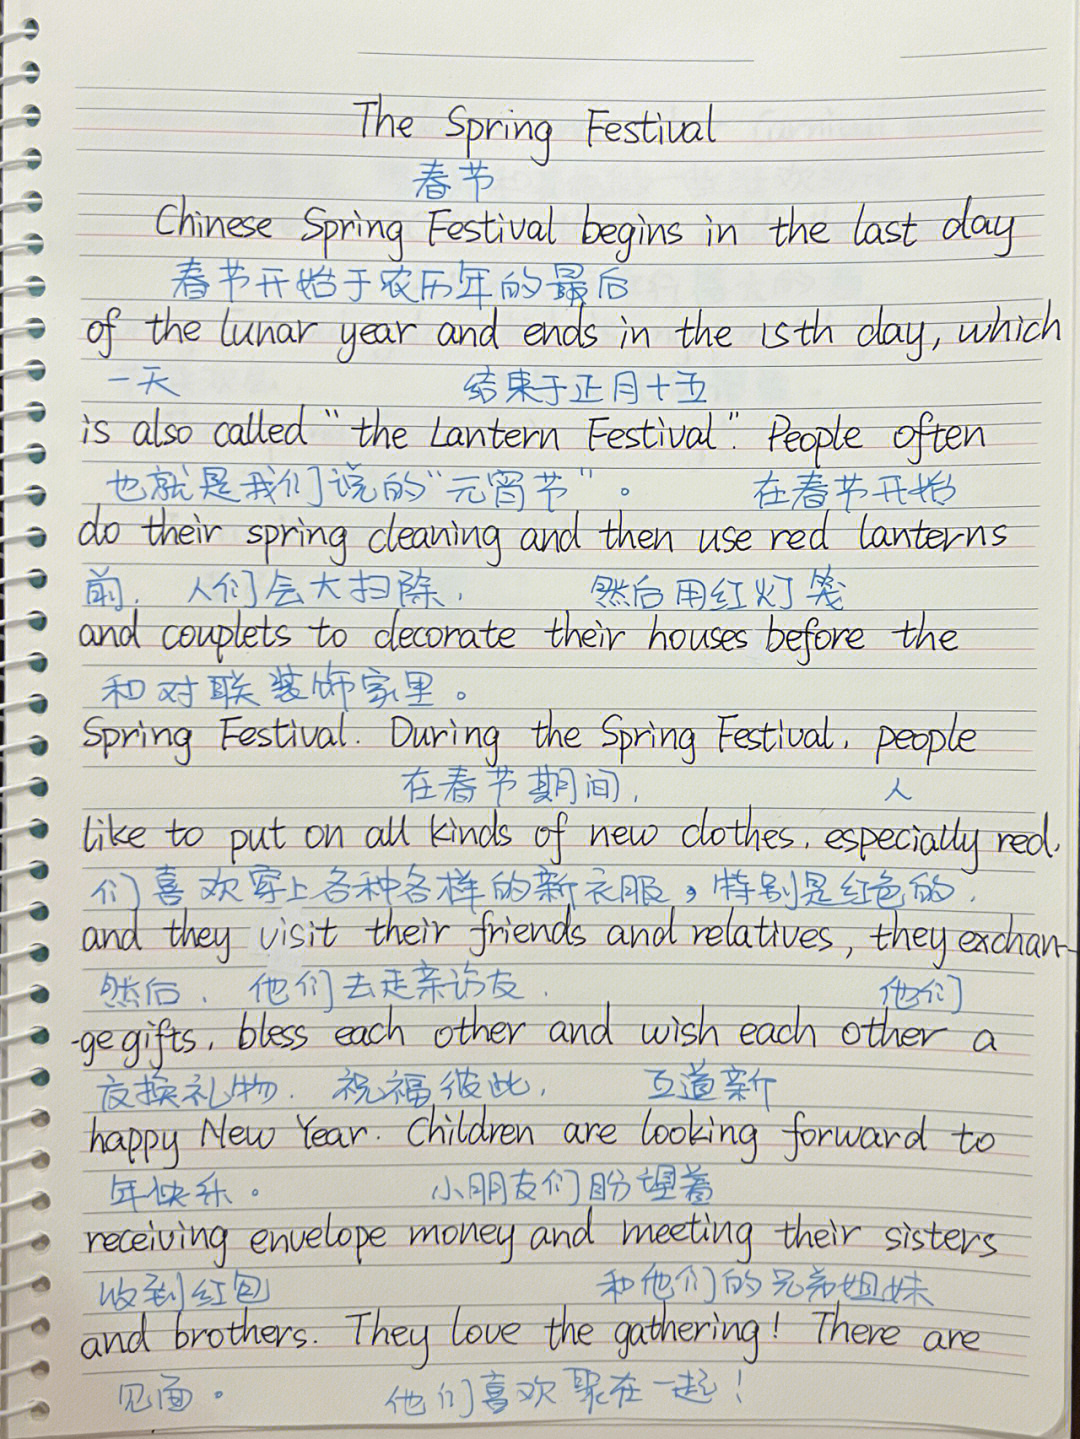 The Spring Festival
春节
Chinese Spring Festival begins in the last day
春节开始于农历年的最后
of the lunar year and ends in the 15th day, which
一天 结束于正月十五
is also called "the Lantern Festival". People often
也就是我们说的"元宵节"。 在春节开始
do their spring cleaning and then use red lanterns
前, 人们会大扫除, 然后用红灯笼
and couplets to decorate their houses before the
和对联装饰家里。
Spring Festival. During the Spring Festival, people
在春节期间, 人
like to put on all kinds of new clothes, especially red,
们喜欢穿上各种各样的新衣服,特别是红色的,
and they visit their friends and relatives, they exchan-
然后, 他们去走亲访友, 他们
-ge gifts, bless each other and wish each other a
交换礼物, 祝福彼此, 互道新
happy New Year. Children are looking forward to
年快乐。 小朋友们盼望着
receiving envelope money and meeting their sisters
收到红包 和他们的兄弟姐妹
and brothers. They love the gathering! There are
见面。 他们喜欢聚在一起!